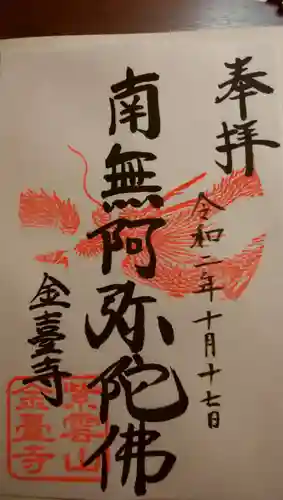 奉拝
令和二年十月十七日
南無阿弥陀佛
金臺寺
紫雲山
金臺寺